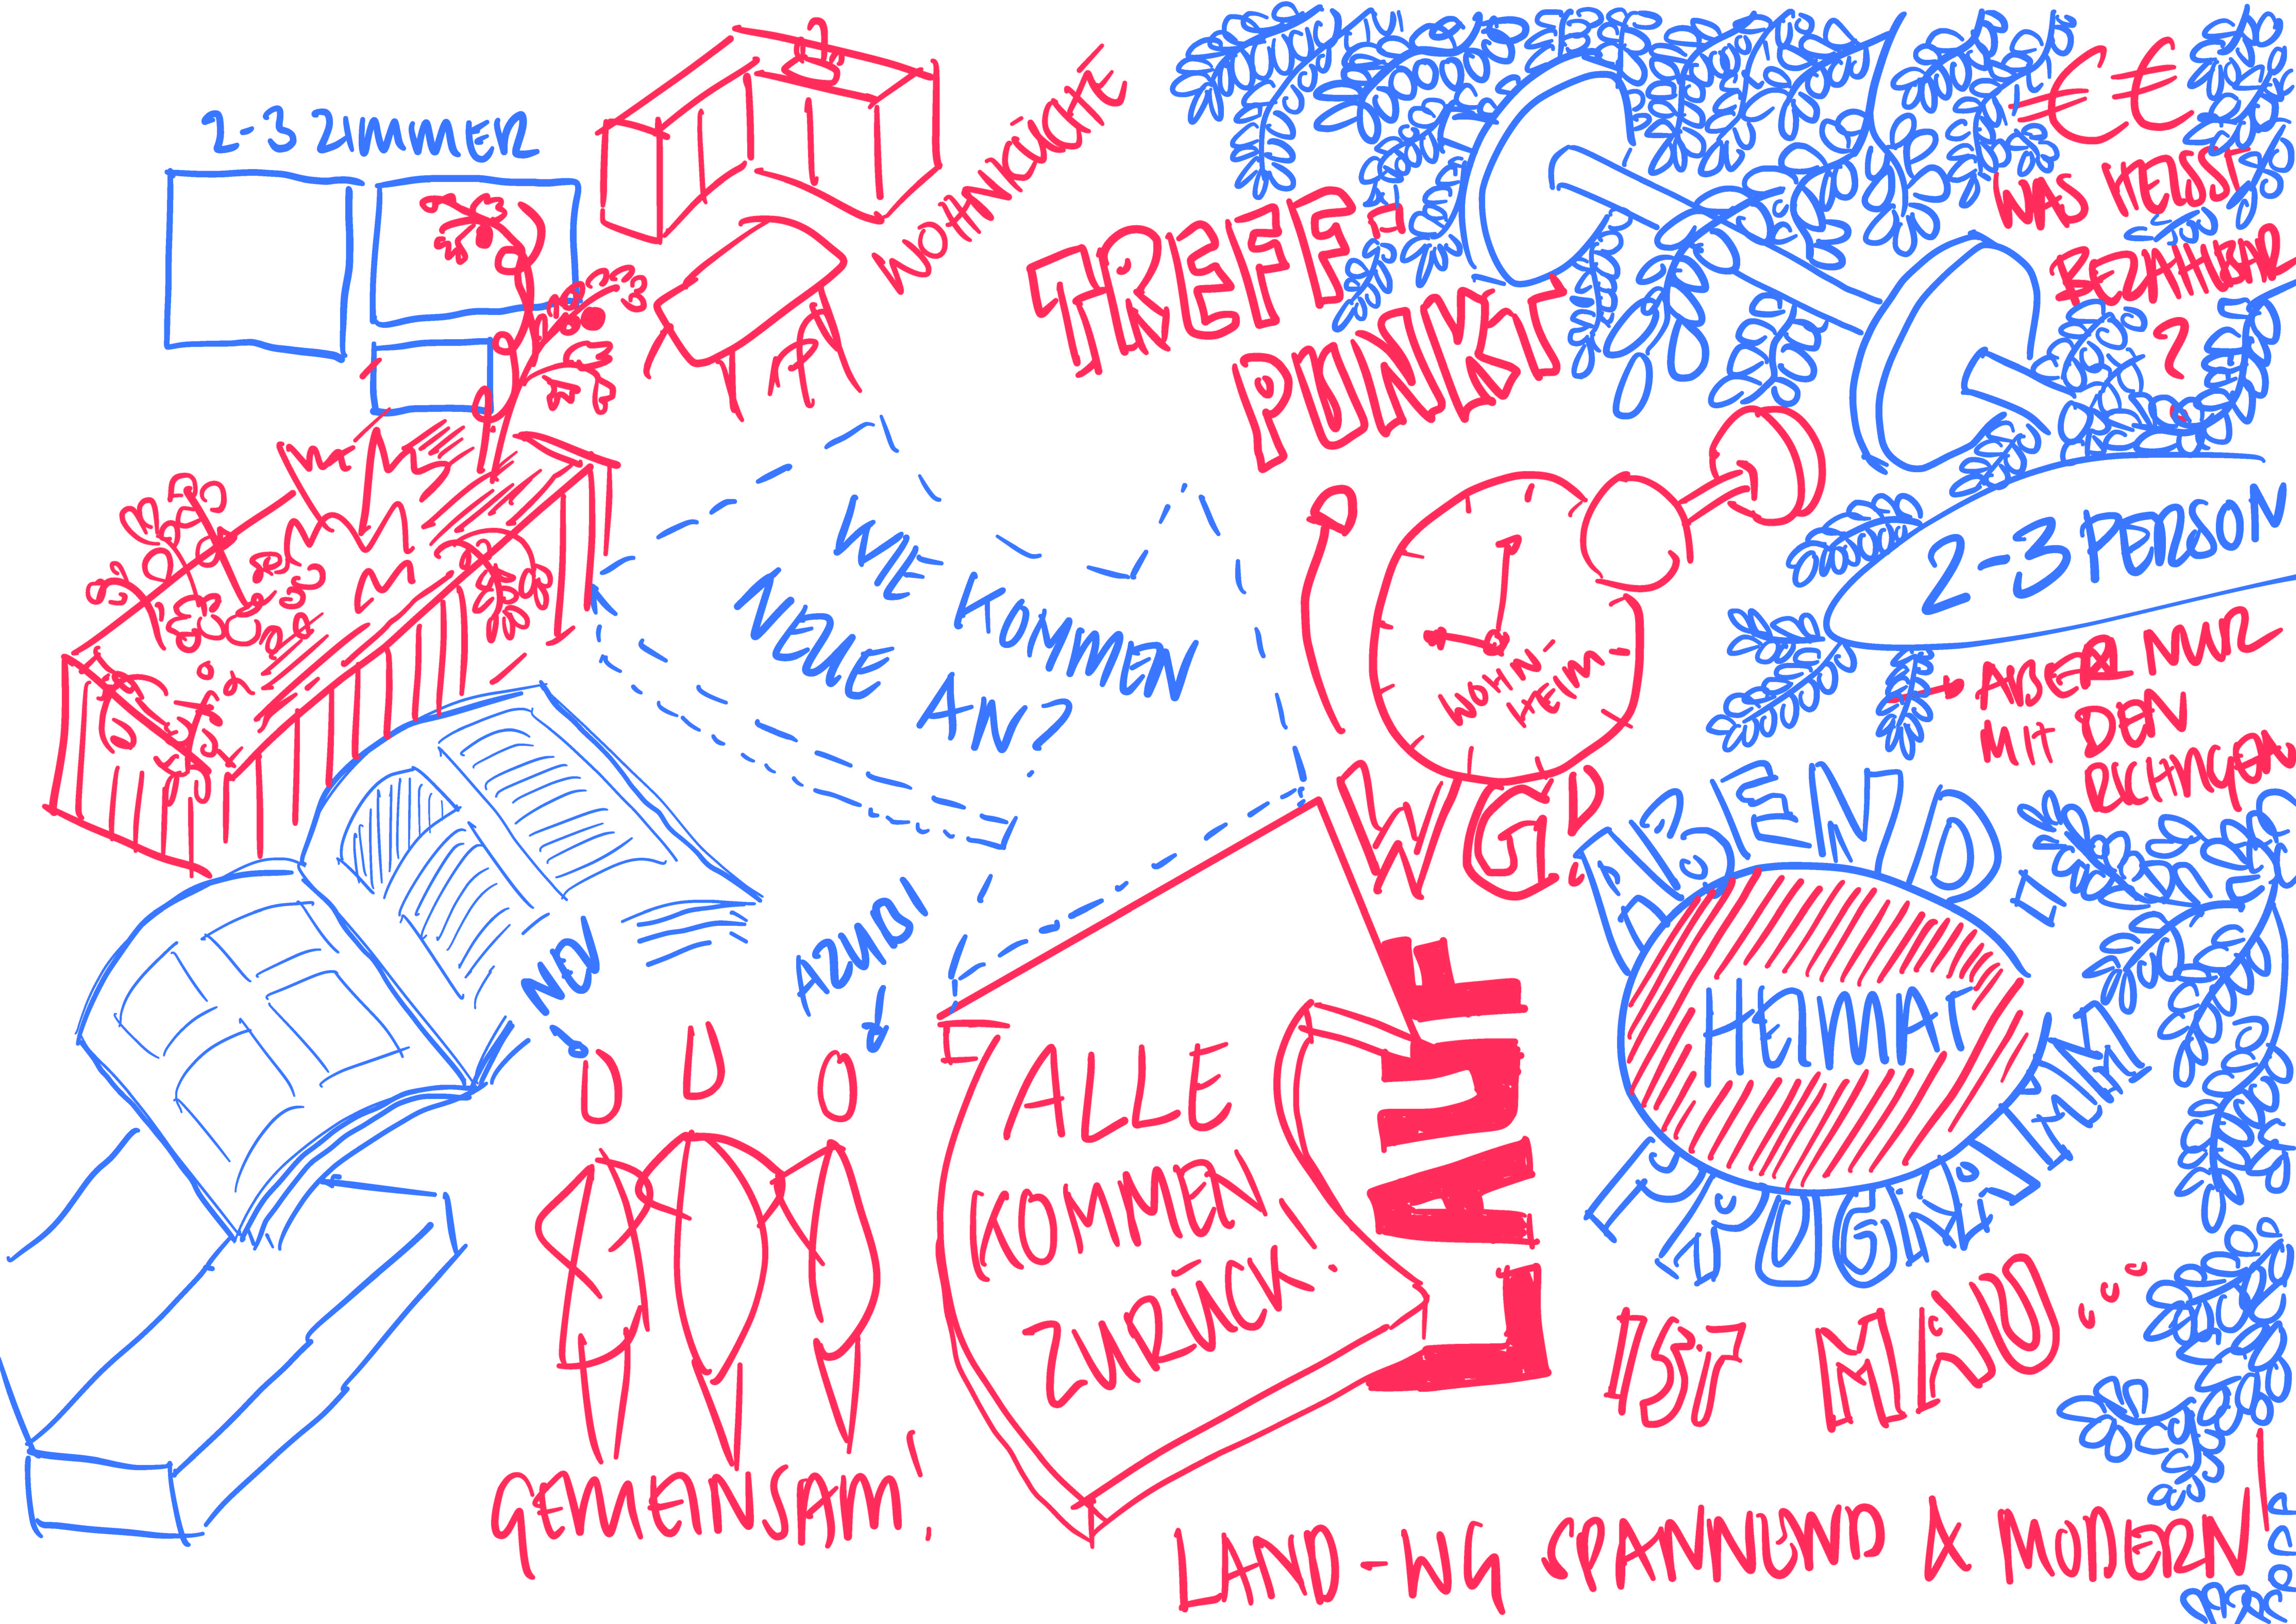 2-3 ZIMMER
WOHNKÜCHE
TREFF-
PUNKT
€€
WAS HEISST
BEZAHLBAR
?
2-3 PERSON
ABER NUR
MIT DEN
RICHTIGEN
WIE KOMMEN
NEUE AN?
WOHN-
HEIM
WG!
ABEND
HEIMAT
NEU
AZUBI
ALLE
KOMMEN
ZURÜCK!
LAUF
GEMEINSAM!
LAND-WG SPANNEND & MODERN!